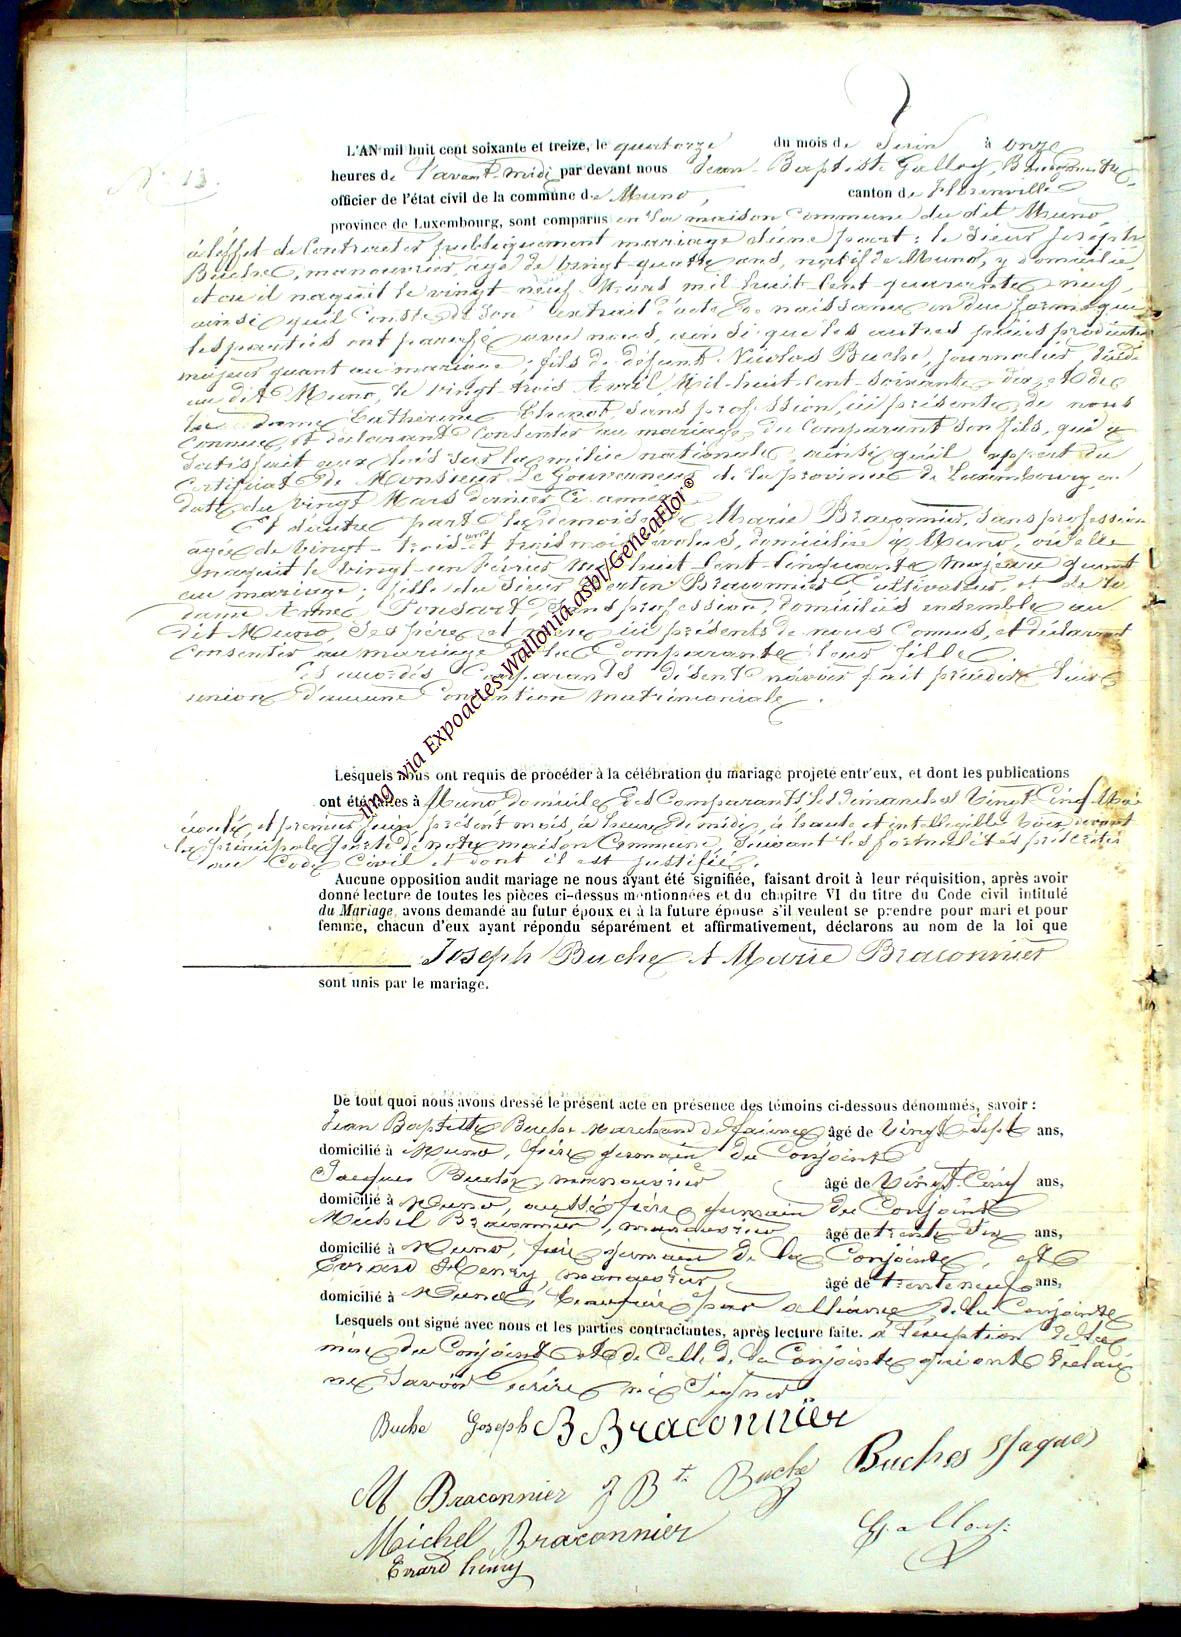 N° 13.
L'AN mil huit cent soixante et treize, le quatorze du mois de Juin à onze
heures de l'avant-midi par devant nous Jean-Baptiste Galloy, Bourgmestre,
officier de l'état civil de la commune de Muno, canton de Florenville
province de Luxembourg, sont comparus en la maison commune du dit Muno,
à l'effet de contracter publiquement mariage d'une part : le Sieur Joseph
Buche, manouvrier, agé de vingt-quatre ans, natif de Muno, y domicilié,
et où il naquit le vingt neuf Mars mil huit cent quarante neuf,
ainsi qu'il conste de son extrait d'acte de naissance en due forme que
les parties ont paraphé avec nous, ainsi que les autres pièces produites
majeur quant au mariage ; fils de défunt Nicolas Buche, journalier, décédé
au dit Muno, le vingt-trois Avril, Mil-huit-cent-soixante-dix, et de
la dame Cathérine Thenot, sans profession, ici présente, de nous
connue, et déclarant consentir au mariage du comparant son fils, qui a
satisfait aux lois sur la milice nationale, ainsi qu'il appert du
certificat de Monsieur Le Gouverneur de la province de Luxembourg, en
date du vingt Mars dernier ce année.
Et d'autre part la demoiselle Marie Braconnier, sans profession
agée de vingt-trois ans et trois mois révolus, domiciliée à Muno, où elle
naquit le vingt-un Février mil huit cent cinquante majeure quant
au mariage ; fille du Sieur Braconnier, cultivateur, et de la
dame Anne Ponsart, sans profession, domiciliés ensemble au
dit Muno, ses père et mère ici présents de nous connus, et déclarant
consentir au mariage de la comparante leur fille.
Les comparants disent n'avoir fait précéder leur
union d'aucune convention matrimoniale.
Lesquels nous ont requis de procéder à la célébration du mariage projeté entr'eux, et dont les publications
ont été faites à Muno domicile des comparants les dimanches vingt cinq Mai
écoulé, et premier Juin, présent mois, à l'heure de midi, à haute et intelligible voix, devant
la principale porte de notre maison commune, suivant les formalités prescrites
au Code Civil et dont il est justifié.
Aucune opposition audit mariage ne nous ayant été signifiée, faisant droit à leur réquisition, après avoir
donné lecture de toutes les pièces ci-dessus mentionnées et du chapitre VI du titre du Code civil intitulé
du Mariage, avons demandé au futur époux et à la future épouse s'il veulent se prendre pour mari et pour
femme, chacun d'eux ayant répondu séparément et affirmativement, déclarons au nom de la loi que
Joseph Buche et Marie Braconnier
sont unis par le mariage.
De tout quoi nous avons dressé le présent acte en présence des témoins ci-dessous dénommés, savoir :
Jean Baptiste Buche Marchand de faïence, âgé de vingt-sept ans,
domicilié à Muno, frère germain du Conjoint
Jacques Buche, manouvrier âgé de vingt-cinq ans,
domicilié à Muno, aussi frère germain du Conjoint
Michel Braconnier, manouvrier âgé de trente-deux ans,
domicilié à Muno, frère germain de la Conjointe, et
Evrard Henry, manouvrier, âgé de trente neuf ans,
domicilié à Muno, beaufrère par alliance de la Conjointe
Lesquels ont signé avec nous et les parties contractantes, après lecture faite. à l'exception de la
mère du Conjoint et de celle de la Conjointe qui ont déclaré
ne savoir écrire ni signer
Buche Joseph B Braconnier
M Braconnier J Bte Buche Buches Jaques
Michel Braconnier Galloy.
Evrard henry
via Expoactes-Wallonia asbl/GeneaFloi©